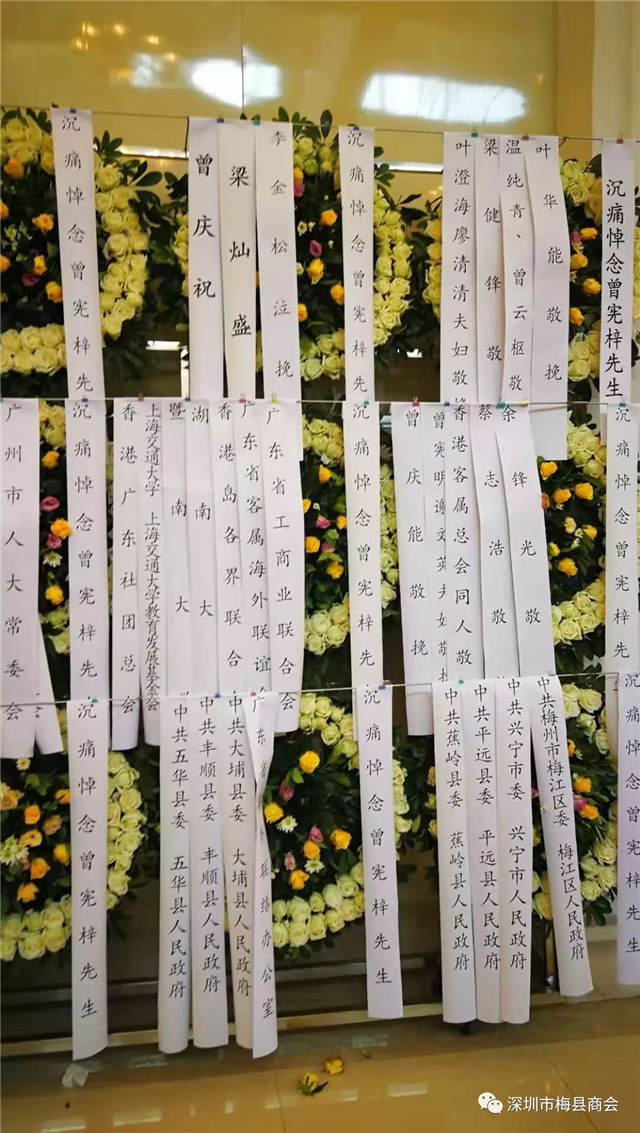 沉痛悼念曾宪梓先
曾庆祝
梁灿盛
李金松泣挽
沉痛悼念曾宪梓先
叶澄海廖清清夫妇敬挽
梁健锋敬
温纯青、曾云枢敬
叶华能敬挽
沉痛悼念曾宪梓先生
广州市人大常委会
沉痛悼念曾宪梓先
香港广东社团总会
上海交通大学 上海交通大学教育发展基金会
暨南大
湖南大
香港岛各界联合
广东省客属海外联谊会
广东省工商业联合会
沉痛悼念曾宪梓先
曾庆能敬挽
曾宪明谢文英夫妇敬
香港客属总会同人敬
蔡志浩敬
余锋光敬
沉痛悼念曾宪梓先
沉痛悼念曾宪梓先生
中共五华县委 五华县人民政府
中共丰顺县委 丰顺县人民政府
中共大埔县委 大埔县人民政府
广东省
联络办公室
沉痛悼念曾宪梓先生
中共蕉岭县委 蕉岭县人民政府
中共平远县委 平远县人民政府
中共兴宁市委 兴宁市人民政府
中共梅州市梅江区委 梅江区人民政府
沉痛悼念曾宪梓先生
深圳市梅县商会